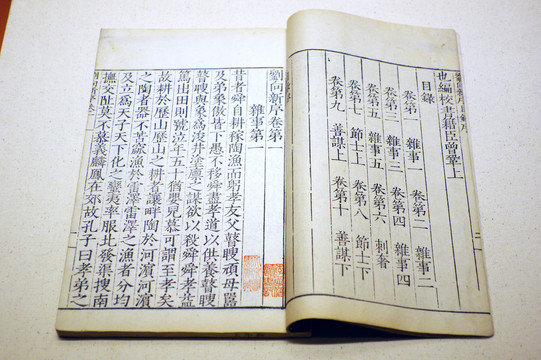 也編校書籍臣曾鞏上
目錄
卷第一 雜事一 卷第二 雜事二
卷第三 雜事三 卷第四 雜事四
卷第五 雜事五 卷第六 刺奢
卷第七 節士上 卷第八 節士下
卷第九 善謀上 卷第十 善謀下
劉向新序卷第一
雜事第一
昔者舜自耕稼陶漁而躬孝友父瞽瞍頑母嚚
及弟象傲皆下愚不移舜盡孝道以供養瞽瞍
瞽瞍與象為浚井塗廩之謀欲以殺舜舜孝益
篤出田則號泣年五十猶嬰兒慕可謂至孝矣
故耕於歷山歷山之耕者讓畔陶於河濱河濱
之陶者器不苦窳漁於雷澤雷澤之漁者分均
及立為天子天下化之蠻夷率服北發渠搜南
撫交阯莫不慕義麟鳳在郊故孔子曰孝弟之